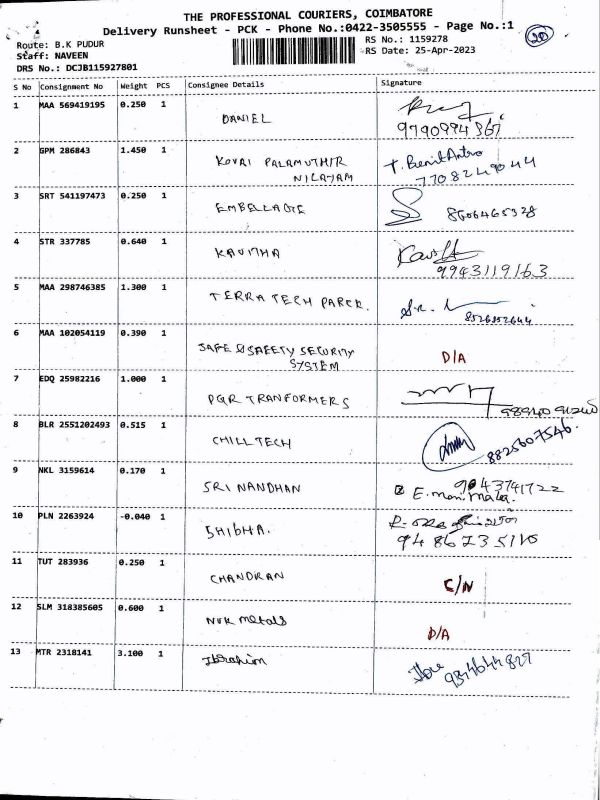 THE PROFESSIONAL COURIERS, COIMBATORE
Delivery Runsheet - PCK - Phone No.:0422-3505555 - Page No.:1
20
Route: B.K PUDUR
RS No.: 1159278
Staff: NAVEEN
RS Date: 25-Apr-2023
DRS No.: DCJB115927801
S No Consignment No Weight PCS Consignee Details Signature
1 MAA 569419195 0.250 1 DANIEL
2 GPM 286843 1.450 1 KOVAI PALAMUTHIR NILAYAM T. Benit Antro
7708249044
3 SRT 541197473 0.250 1 EMBELLADIE 8606465328
4 STR 337785 0.640 1 KAVITHA Kavitha
9943119163
5 MAA 298746385 1.300 1 TERRA TECH PARCK.
8526852644
6 MAA 102054119 0.390 1 SAFE & SAFETY SECURITY SYSTEM D/A
7 EDQ 25982216 1.000 1 PGR TRANFORMERS
8 BLR 2551202493 0.515 1 CHILLTECH 8825607546.
9 NKL 3159614 0.170 1 SRI NANDHAN 9043741722
E. mani mala.
10 PLN 2263924 -0.040 1 SHIBHA.
11 TUT 283936 0.250 1 CHANDRAN C/N
12 SLM 318385605 0.600 1 NVK metals D/A
13 MTR 2318141 3.100 1 Ibrahim